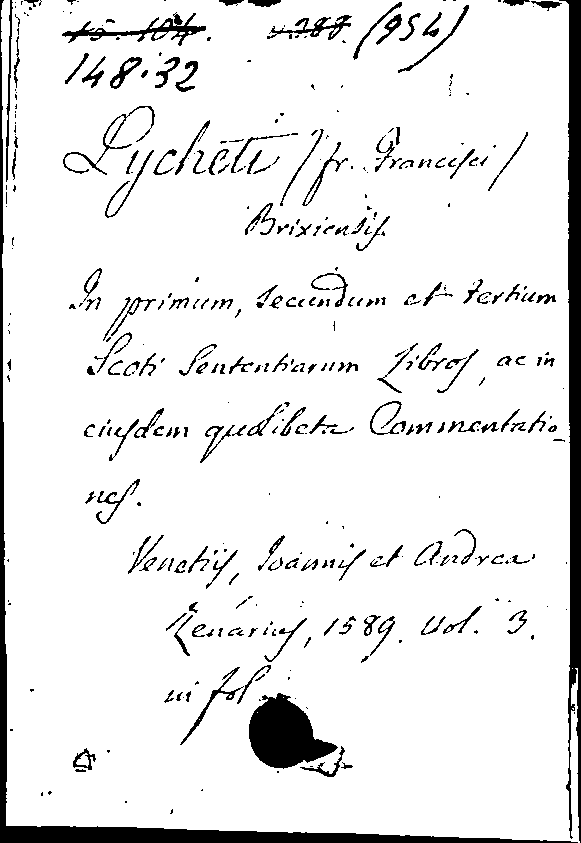 15. 104. (954)
148.32
Lycheti (fr. Francisci)
Brixiensis.
In primum, secundum et tertium
Scoti Sententiarum Libros, ac in
eiusdem quolibeta Commentatio-
nes.
Venetiis, Joannis et Andrea
Zenarius, 1589. Vol. 3.
in fol.